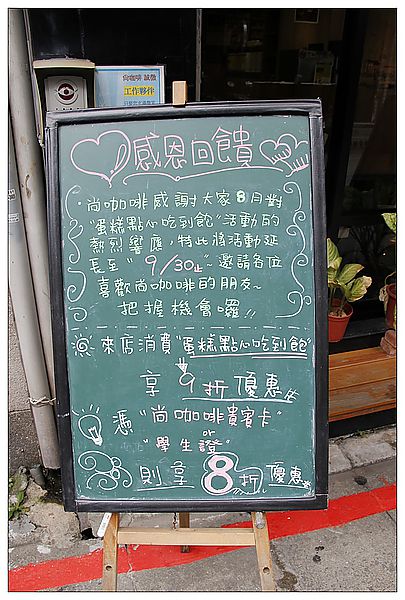 尚咖啡 誠徵
工作夥伴
感恩回饋
尚咖啡感謝大家8月對
"蛋糕點心吃到飽"活動的
熱烈響應，特此將活動延
長至"9/30止"~邀請各位
喜歡尚咖啡的朋友~
把握機會囉!!
來店消費"蛋糕點心吃到飽"
享9折優惠
憑"尚咖啡貴賓卡"
or
"學生證"
則享8折優惠